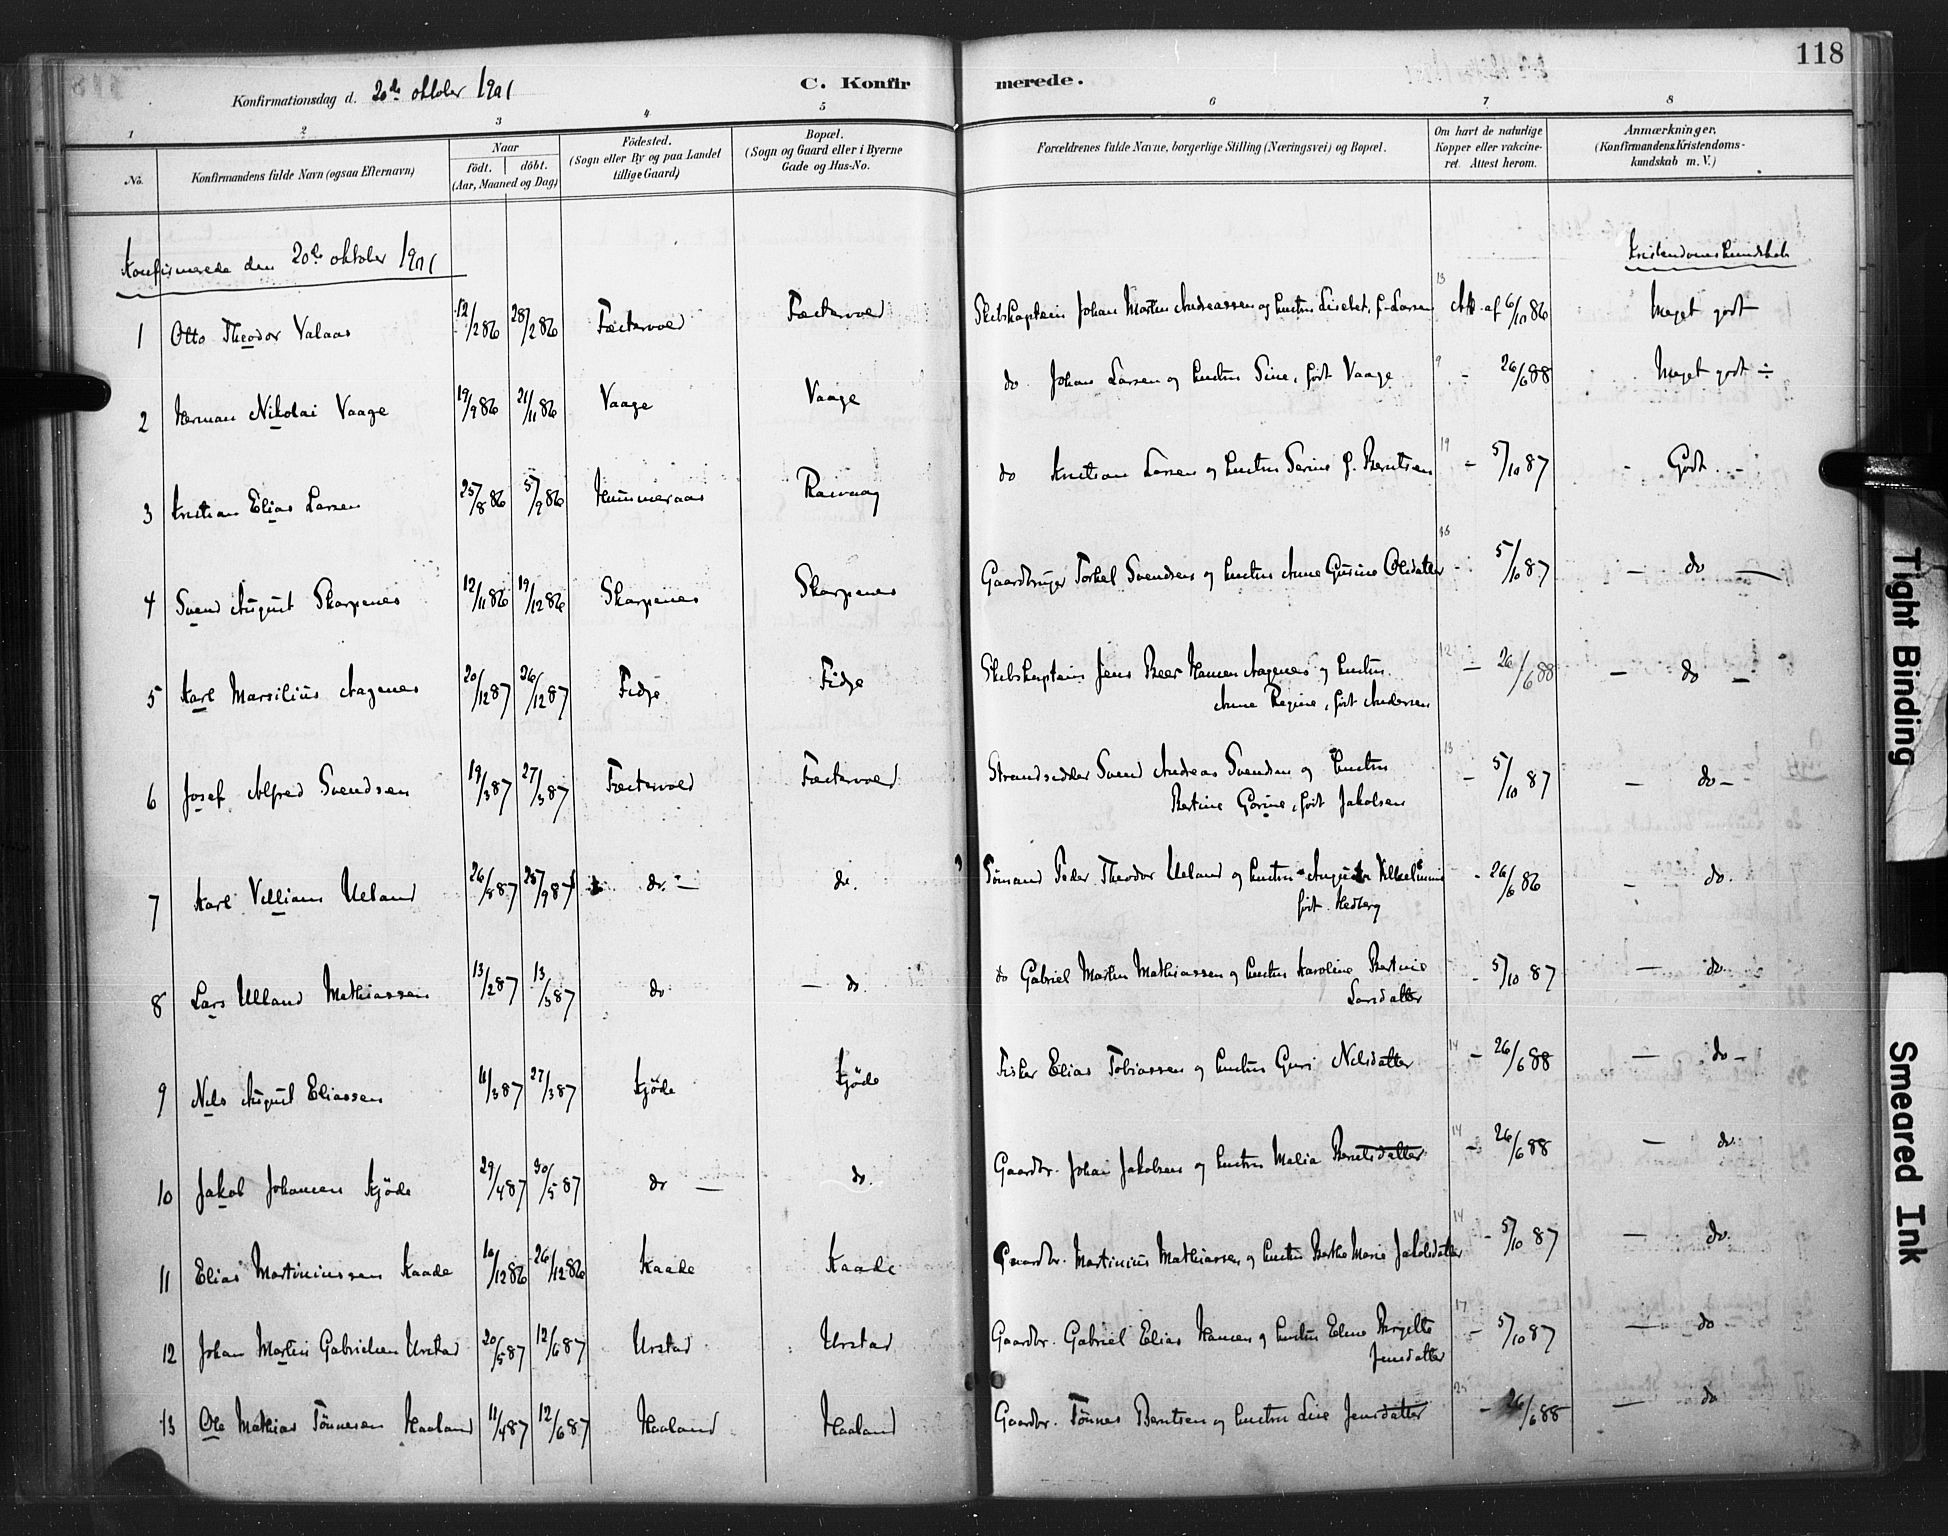 118
Konfirmationsdag d. 20de oktober 1901
C. Konfirmerede.
1 2 3 4 5 6 7 8
No.
Konfirmandens fulde Navn (ogsaa Efternavn)
Naar
födt. döbt.
(Aar, Maaned og Dag)
Födested.
(Sogn eller By og paa Landet
tillige Gaard)
Bopæl.
(Sogn og Gaard eller i Byerne
Gade og Hus-No.
Forældrenes fulde Navne, borgerlige Stilling (Næringsvei) og Bopæl.
Om havt de naturlige
Kopper eller vakcine-
ret. Attest herom.
Anmærkninger,
(Konfirmandens Kristendoms-
kundskab m. V.)
Konfirmerede den 20de oktober 1901
Kristendomskundskab
1 Otto Theodor Valaas 12/2 86 28/2 86 Fæstervold Fæstervold Skibskaptein Johan Martin Andreassen og hustru Lisebet, f. Larsen 13 Att. af 6/10 86 Meget godt
2 Herman Nikolai Vaage 19/9 86 21/11 86 Vaage Vaage do Johan Larsen og hustru Sine, født Vaage 9 - 26/6 88 Meget godt ÷
3 Kristian Elias Larsen 25/8 86 5/9 86 Hummeraas do Kristian Larsen og hustru Serine f. Berntsen 19 - 5/10 87 - Godt -
4 Svend August Skarpenes 12/11 86 19/12 86 Skarpenes Skarpenes Gaardbruger Torkel Svendsen og hustru Anne Gurine Olsdatter - 5/10 87 - do -
5 Karl Marsilius Aagenes 20/12 87 26/12 87 Fidje Fidje Skibskaptein Jens Beer Hansen Aagenes og hustru
Anne Regine, født Andersen 12 - 26/6 88 - do -
6 Josef Alfred Svendsen 19/3 87 27/3 87 Fæstervold Fæstervold Strandsidder Svend Andreas Svendsen og hustru
Bertine Gorine, født Jakobsen 13 - 5/10 87 - do -
7 Karl Villiam Ueland 26/8 87 25/9 87 do. - do. Sømand Peder Theodor Ueland og hustru Augusta Vilhelmine
født Hedberg - 26/6 86 - do.
8 Lars Ulland Mathiassen 13/2 87 13/3 87 do - do. do Gabriel Martin Mathiassen og hustru Karoline Bertine
Larsdatter - 5/10 87 - do.
9 Nils August Eliassen 11/3 87 27/3 87 Kjöde Kjöde Fisker Elias Tobiassen og hustru Guri Nilsdatter 14 - 26/6 88 - do -
10 Jakob Johansen Kjöde 29/4 87 30/5 87 do - do. Gaardbr. Johan Jakobsen og hustru Malia Berntsdatter 14 - 26/6 88 - do.
11 Elias Martiniussen Kaade 10/12 86 26/12 86 Kaade Kaade Gaardbr. Martinius Mathiassen og hustru Berthe Marie Jakobsdatter 14 - 5/10 87 - do.
12 Johan Martin Gabrielsen Urstad 20/5 87 12/6 87 Urstad Urstad Gaardbr. Gabriel Elias Hansen og hustru Eline Birgitte
Jensdatter 17 - 5/10 87 - do
13 Ole Mathias Tönnesen Haaland 11/4 87 12/6 87 Haaland Haaland Gaardbr. Tönnes Berntsen og hustru Line Jensdatter - 26/6 88 - do
Tight Binding
Smeared Ink